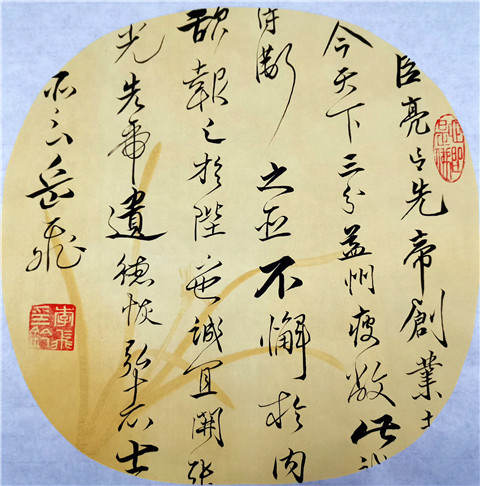 臣亮言先帝創業
今天下三分益州疲敝此誠
侍衛之臣不懈於内
欲報之於陛下也誠宜開張
光先帝遺德恢弘志士
所云岳飛